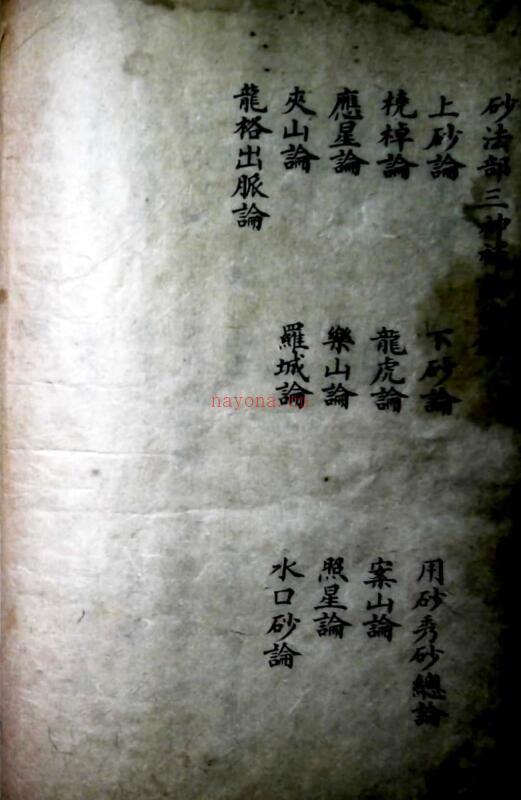 砂法部三
上砂論 下砂論 用砂秀砂總論
橈棹論 龍虎論 案山論
應星論 樂山論 照星論
夾山論 羅城論 水口砂論
龍格出脈論
nayona.cn